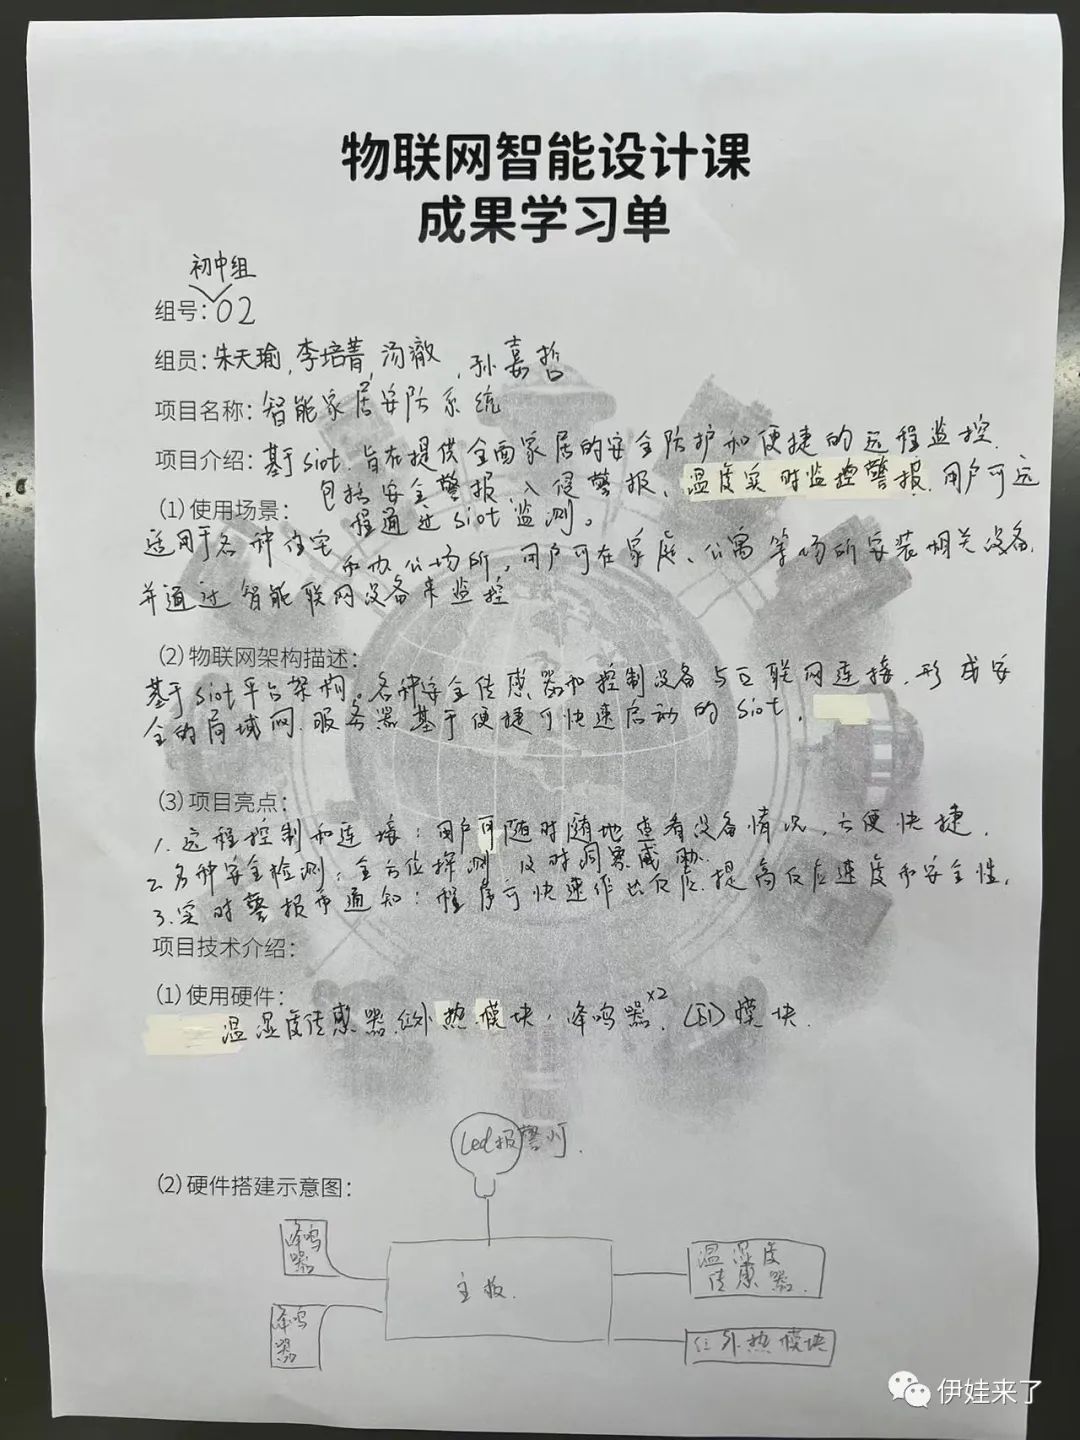 物联网智能设计课
成果学习单
初中组
组号：02
组员：朱天瑜，李培菁，汤澈，孙嘉哲
项目名称：智能家居安防系统
项目介绍：基于siot，旨在提供全面家居的安全防护和便捷的远程监控.
包括安全警报、入侵警报、温度实时监控警报，用户可远
(1)使用场景：
程通过siot监测。
适用于各种住宅和办公场所，用户可在家庭、公寓等场所安装相关设备，
并通过智能联网设备来监控
(2)物联网架构描述：
基于siot平台架构。各种安全传感器和控制设备与互联网连接，形成安
全的局域网.服务器基于便捷可快速启动的siot.
(3)项目亮点：
1.远程控制和连接：用户可随时随地查看设备情况，方便快捷.
2.各种安全检测：全方位探测 及时洞察威胁.
3.实时警报和通知：程序可快速作出反应.提高反应速度和安全性.
项目技术介绍：
(1)使用硬件：
温湿度传感器.红外热模块，蜂鸣器×2.模块.
Led报警灯.
(2)硬件搭建示意图：
蜂鸣器
主板.
温湿度
传感器.
蜂鸣器
红外热模块
伊娃来了